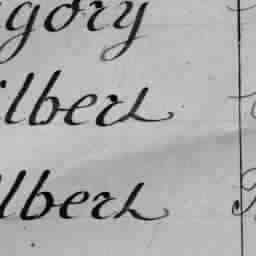 gory
ilbert
lbert